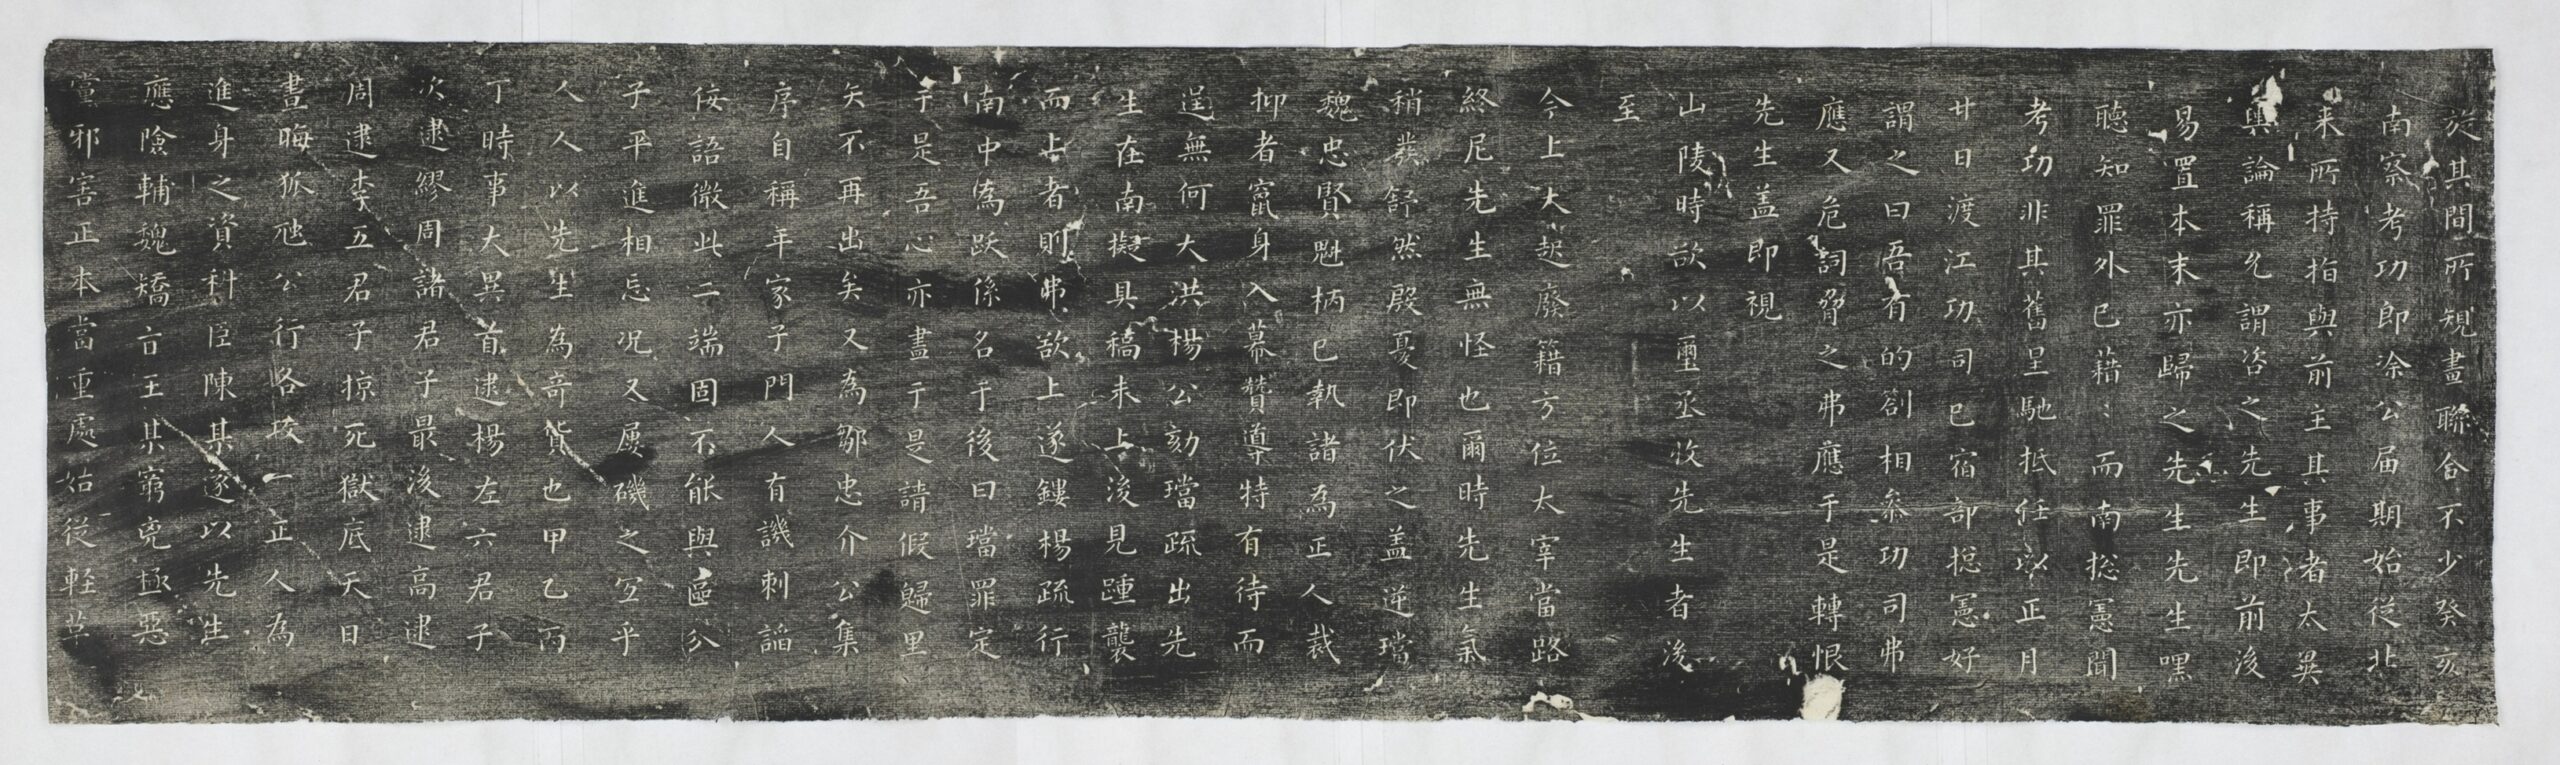 旋其間所規畫聯合不少癸亥
南察考功即涂公届期始従北
来所持指與前主其事者太異
輿論稱允謂咨之先生即前後
易置本末亦歸之先生先生嘿
聴知罪外已藉〻而南総憲聞
考功非其舊呈馳抵任以正月
廿日渡江功司已宿部総憲好
謂之曰吾有的劄相叅功司弗
應又危詞脅之弗應于是轉恨
先生盖即視
山陵時欲以璽丞收先生者後
至
今上大起廢籍方位大宰當路
終尼先生無怪也爾時先生氣
稍發舒然殷憂即伏之盖逆璫
魏忠賢魁柄已執諸為正人裁
抑者竄身入幕贊導特有待而
逞無何大洪楊公劾璫疏出先
生在南擬具稿未上後見踵襲
而上者則弗欲上遂鏤楊疏行
南中為跋係名于後曰璫罪定
于是吾心亦盡于是請假歸里
矣不再出矣又為鄒忠介公集
序自稱年家子門人有譏刺諂
佞語微此二端固不能與區分
子平進相忘况又屬磯之宐乎
人人以先生為竒貨也甲乙丙
丁時事大異首逮楊左六君子
次逮繆周諸君子最後逮高逮
周逮李五君子掠死獄底天日
晝晦狐虺公行各攻一正人為
進身之資科臣陳其遂以先生
應陰輔魏矯旨王其窮兇極惡
黨邪害正本當重處姑従軽革